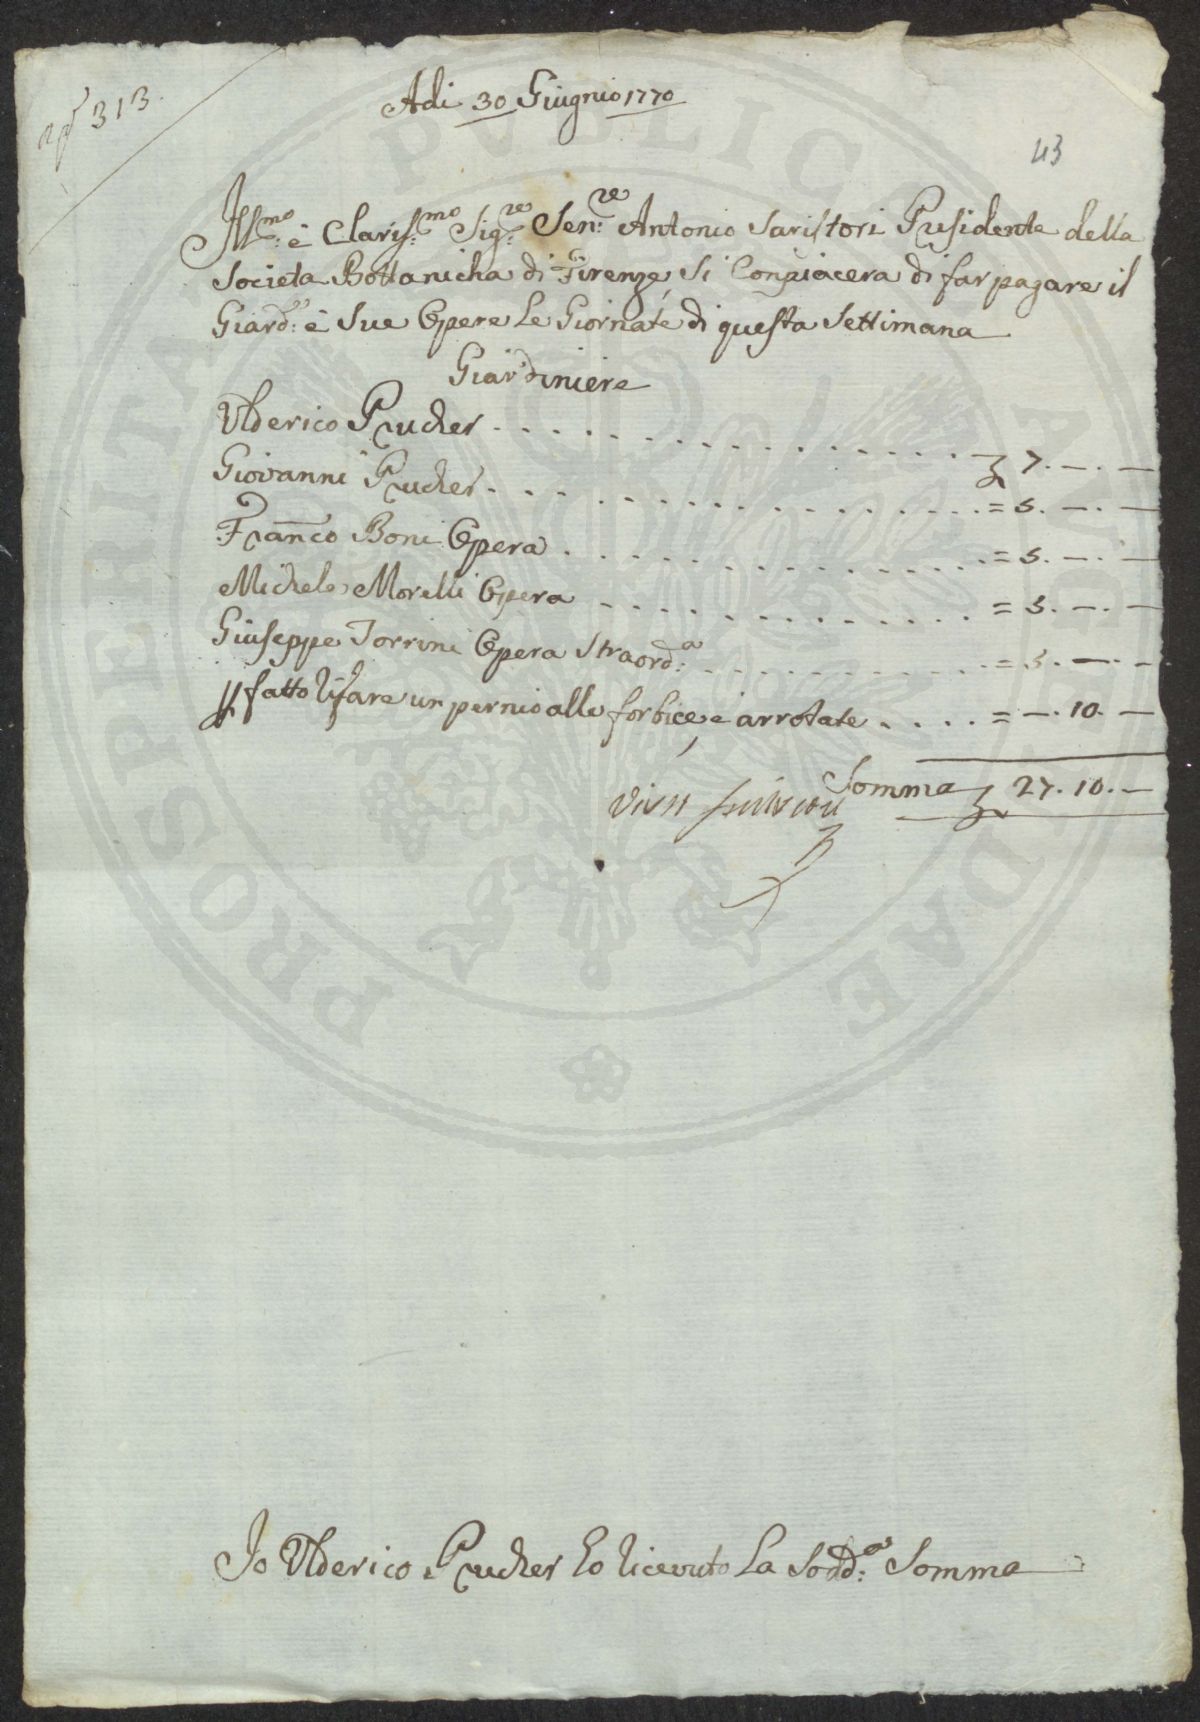 313
Adi 30 Giugnio 1770
43
Ill:mo è Claris:mo Sig:re Sen:re Antonio Saristori Presidente della
Societa Bottanicha di Firenze, si Conpiacera di far pagare il
Giard:e è Sue Opere Le Giornate di questa Settimana
Giardiniere
Vlderico Prucher
7. —. —
Giovanni Prucher
= 5. —. —
Franco Boni Opera
= 5. —. —
Michele Morelli Opera
= 5. —. —
Giuseppe Torrini Opera Straord:a
= 5. —. —
fatto rifare un pernio alle forbice, e arrotate
= —. 10. —
Somma 27. 10. —
Io Vlderico Prucher ho ricevuto La Sodd:a Somma
PROSPERITATI PVBLICAE AVGENDAE